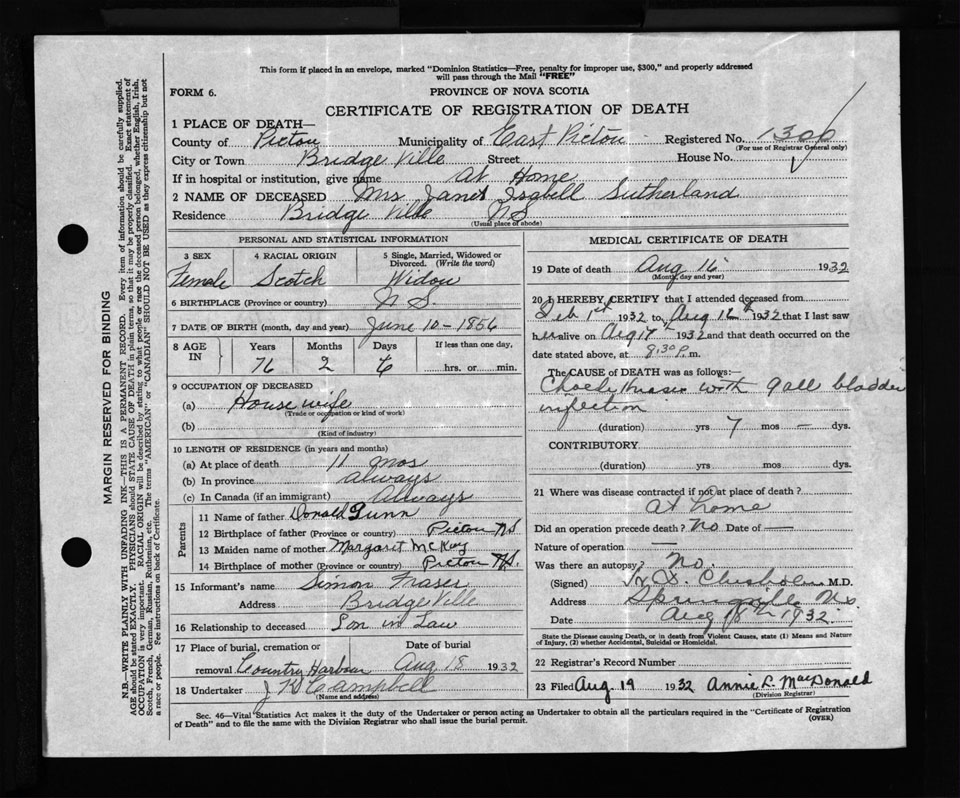 This form if placed in an envelope, marked "Dominion Statistics—Free, penalty for improper use, $300," and properly addressed
will pass through the Mail "FREE"
FORM 6.
PROVINCE OF NOVA SCOTIA
CERTIFICATE OF REGISTRATION OF DEATH
1 PLACE OF DEATH—
County of Pictou Municipality of East Pictou Registered No. 1306
(For use of Registrar General only)
City or Town Bridge Ville Street House No.
If in hospital or institution, give name At Home
2 NAME OF DECEASED Mrs Janet Isabell Sutherland
Residence Bridge Ville N S
(Usual place of abode)
PERSONAL AND STATISTICAL INFORMATION
3 SEX 4 RACIAL ORIGIN 5 Single, Married, Widowed or Divorced. (Write the word)
Female Scotch Widow
6 BIRTHPLACE (Province or country) N S.
7 DATE OF BIRTH (month, day and year) June 10 - 1856
8 AGE IN Years Months Days If less than one day,
76 2 6 hrs. or min.
9 OCCUPATION OF DECEASED
(a) House wife
(Trade or occupation or kind of work)
(b)
(Kind of industry)
10 LENGTH OF RESIDENCE (in years and months)
(a) At place of death 11 mos
(b) In province always
(c) In Canada (if an immigrant) Always
Parents
11 Name of father Donald Gunn
12 Birthplace of father (Province or country) Pictou NS
13 Maiden name of mother Margaret McKay
14 Birthplace of mother (Province or country) Pictou NS.
15 Informant's name Simon Fraser
Address Bridge Ville
16 Relationship to deceased Son in Law
17 Place of burial, cremation or removal Country Harbour Date of burial Aug 18 1932
18 Undertaker J Campbell
(Name and address)
MEDICAL CERTIFICATE OF DEATH
19 Date of death Aug 16 1932
(Month, day and year)
20 I HEREBY CERTIFY that I attended deceased from
Feb 1st 1932 to Aug 1932 that I last saw
her alive on Aug 1932 and that death occurred on the
date stated above, at 8.30 P. m.
The CAUSE of DEATH was as follows:—
with gall bladder
infection
(duration) yrs 7 mos — dys.
CONTRIBUTORY
(duration) yrs. mos. dys.
21 Where was disease contracted if not at place of death?
at home
Did an operation precede death? No Date of —
Nature of operation —
Was there an autopsy? No.
(Signed) Chisholm M.D.
Address Springville N.S.
Date Aug 18th 1932
State the Disease causing Death, or in death from Violent Causes, state (1) Means and Nature
of Injury, (2) whether Accidental, Suicidal or Homicidal.
22 Registrar's Record Number
23 Filed Aug. 19 1932 Annie L. MacDonald
(Division Registrar)
Sec. 46—Vital Statistics Act makes it the duty of the Undertaker or person acting as Undertaker to obtain all the particulars required in the "Certificate of Registration
of Death" and to file the same with the Division Registrar who shall issue the burial permit.
(OVER)
MARGIN RESERVED FOR BINDING
N.B.—WRITE PLAINLY WITH UNFADING INK—THIS IS A PERMANENT RECORD. Every item of information should be carefully supplied.
AGE should be stated EXACTLY. PHYSICIANS should STATE CAUSE OF DEATH in plain terms, so that it may be properly classified. Exact statement of
OCCUPATION is very important. RACIAL ORIGIN will be described by stating to what people or race the deceased person belonged, whether English, Irish,
Scotch, French, German, Russian, Ruthenian, etc. The terms "AMERICAN" or "CANADIAN" SHOULD NOT BE USED as they express citizenship but not
a race or people. See instructions on back of Certificate.